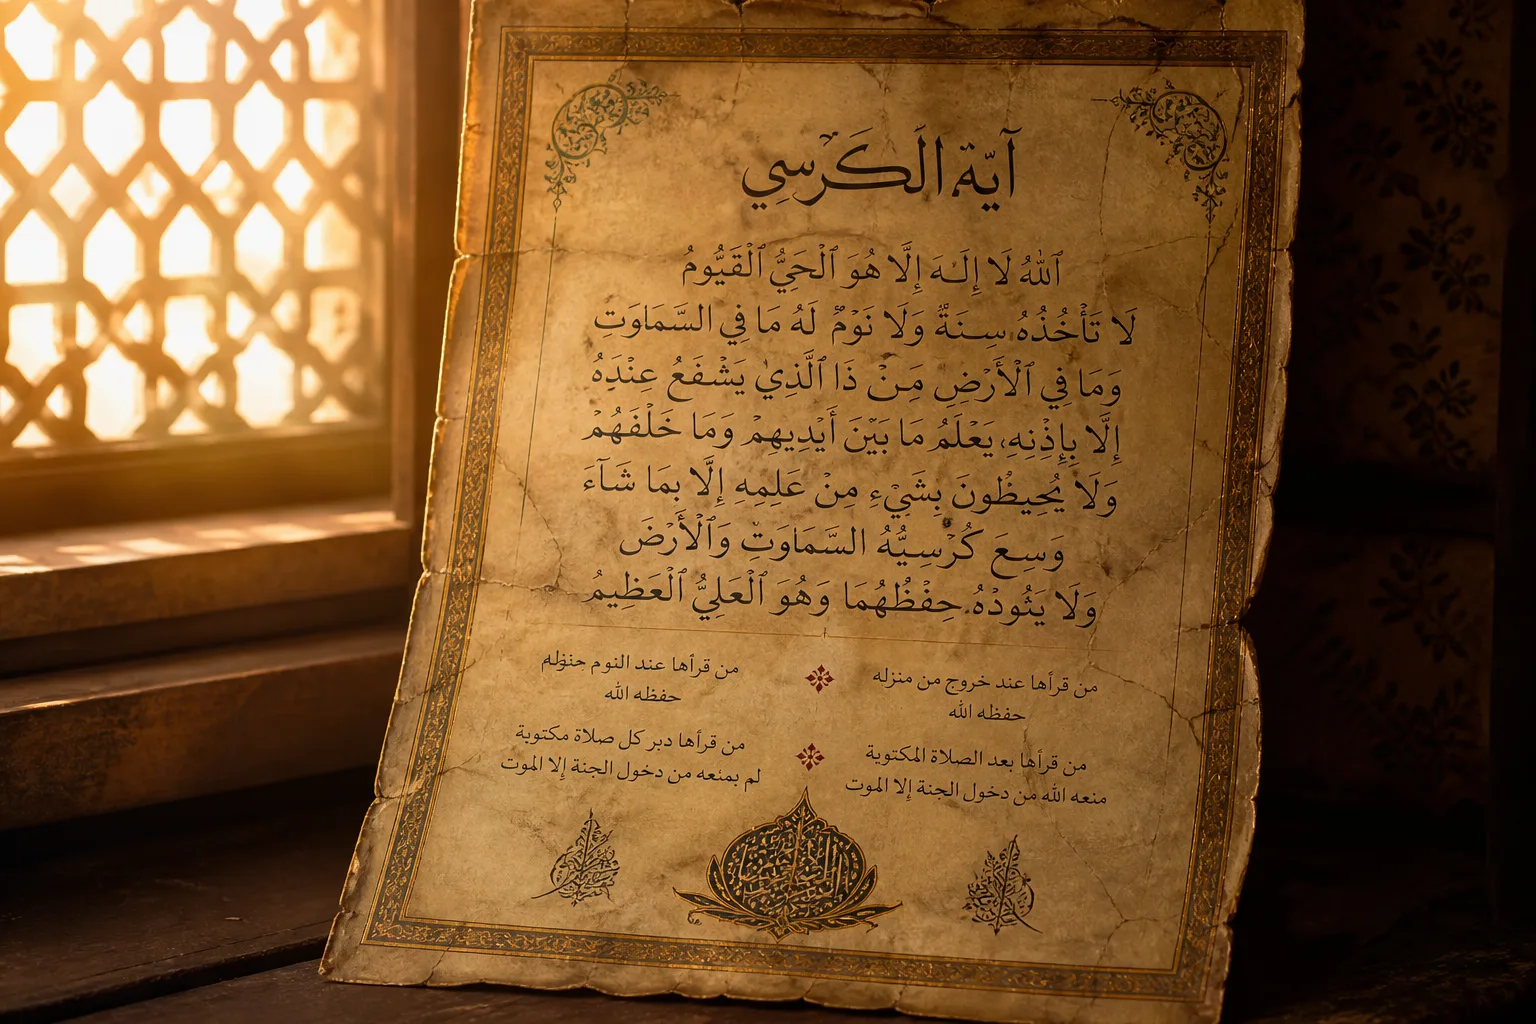 آيَة الْكَرْسِي
ٱللهُ لَا إِلَـٰهَ إِلَّا هُوَ ٱلْحَيُّ ٱلْقَيُّومُ
لَا تَأْخُذُهُۥ سِنَةٌ وَلَا نَوْمٌ لَهُ مَا فِي السَّمَاوَتِ
وَمَا فِي ٱلْأَرْضِ مَنْ ذَا ٱلَّذِي يَشْفَعُ عِنْدَهُ
إِلَّا بِإِذْنِهِۦ يَعْلَمُ مَا بَيْنَ أَيْدِيهِمْ وَمَا خَلْفَهُمْ
وَلَا يُحِيطُونَ بِشَيْءٍ مِنْ عَلِمِهِ إِلَّا بِمَا شَآءَ
وَسِعَ كُرْسِيُّهُ السَّمَاوَتِ وَٱلْأَرْضَ
وَلَا يَئُودْهُۥ حِفْظُهُمَا وَهُوَ ٱلْعَلِيُّ ٱلْعَظِيمُ
من قرأها عند خروج من منزله
حفظه الله
من قرأها عند النوم
حفظه الله
من قرأها بعد الصلاة المكتوبة
منعه الله من دخول الجنة إلا الموت
من قرأها دبر كل صلاة مكتوبة
لم بمنعه من دخول الجنة إلا الموت